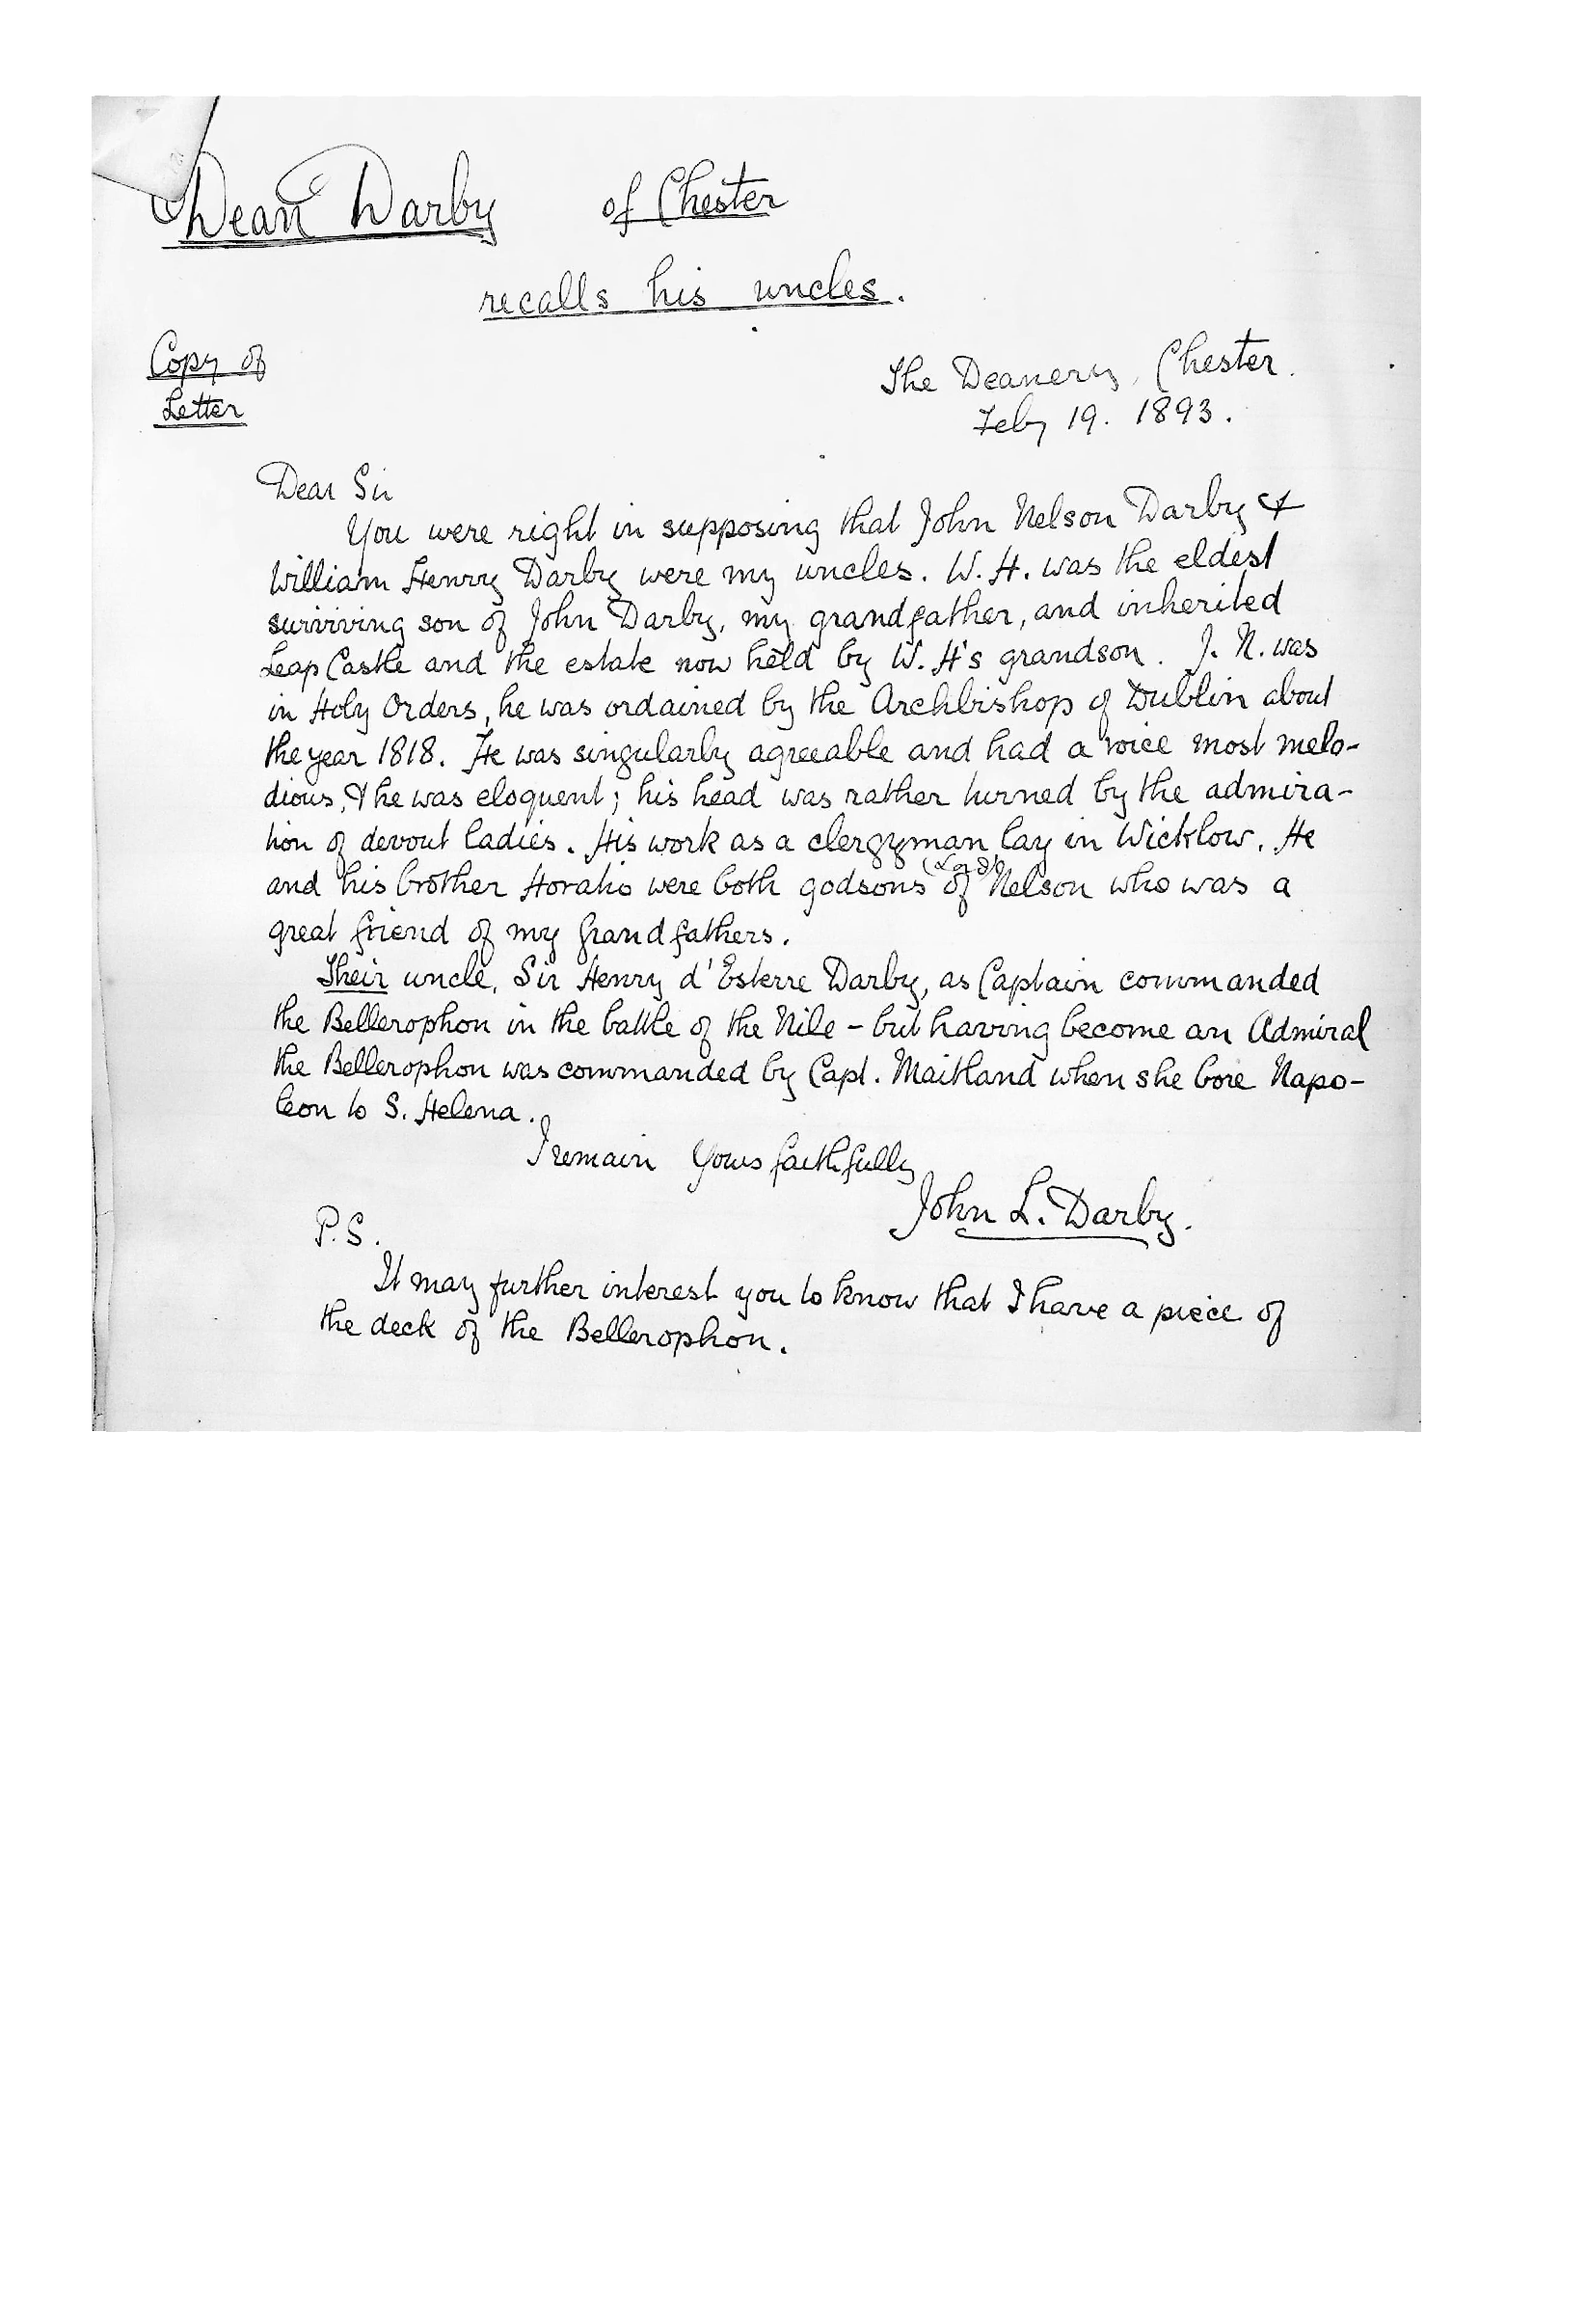 Dean Darby of Chester
recalls his uncles.
Copy of
Letter
The Deanery, Chester.
Feby 19. 1893.
Dear Sir
You were right in supposing that John Nelson Darby &
William Henry Darby were my uncles. W. H. was the eldest
surviving son of John Darby, my grandfather, and inherited
Leap Castle and the estate now held by W. H's grandson. J. N. was
in Holy Orders, he was ordained by the Archbishop of Dublin about
the year 1818. He was singularly agreeable and had a voice most melo-
dious, & he was eloquent; his head was rather turned by the admira-
tion of devout ladies. His work as a clergyman lay in Wicklow. He
and his brother Horatio were both godsons of (Lord) Nelson who was a
great friend of my Grandfathers.
Their uncle, Sir Henry d'Esterre Darby, as Captain commanded
the Bellerophon in the battle of the Nile - but having become an Admiral
the Bellerophon was commanded by Capt. Maitland when she bore Napo-
leon to S. Helena.
I remain Yours faithfully
John L. Darby.
P.S.
It may further interest you to know that I have a piece of
the deck of the Bellerophon.